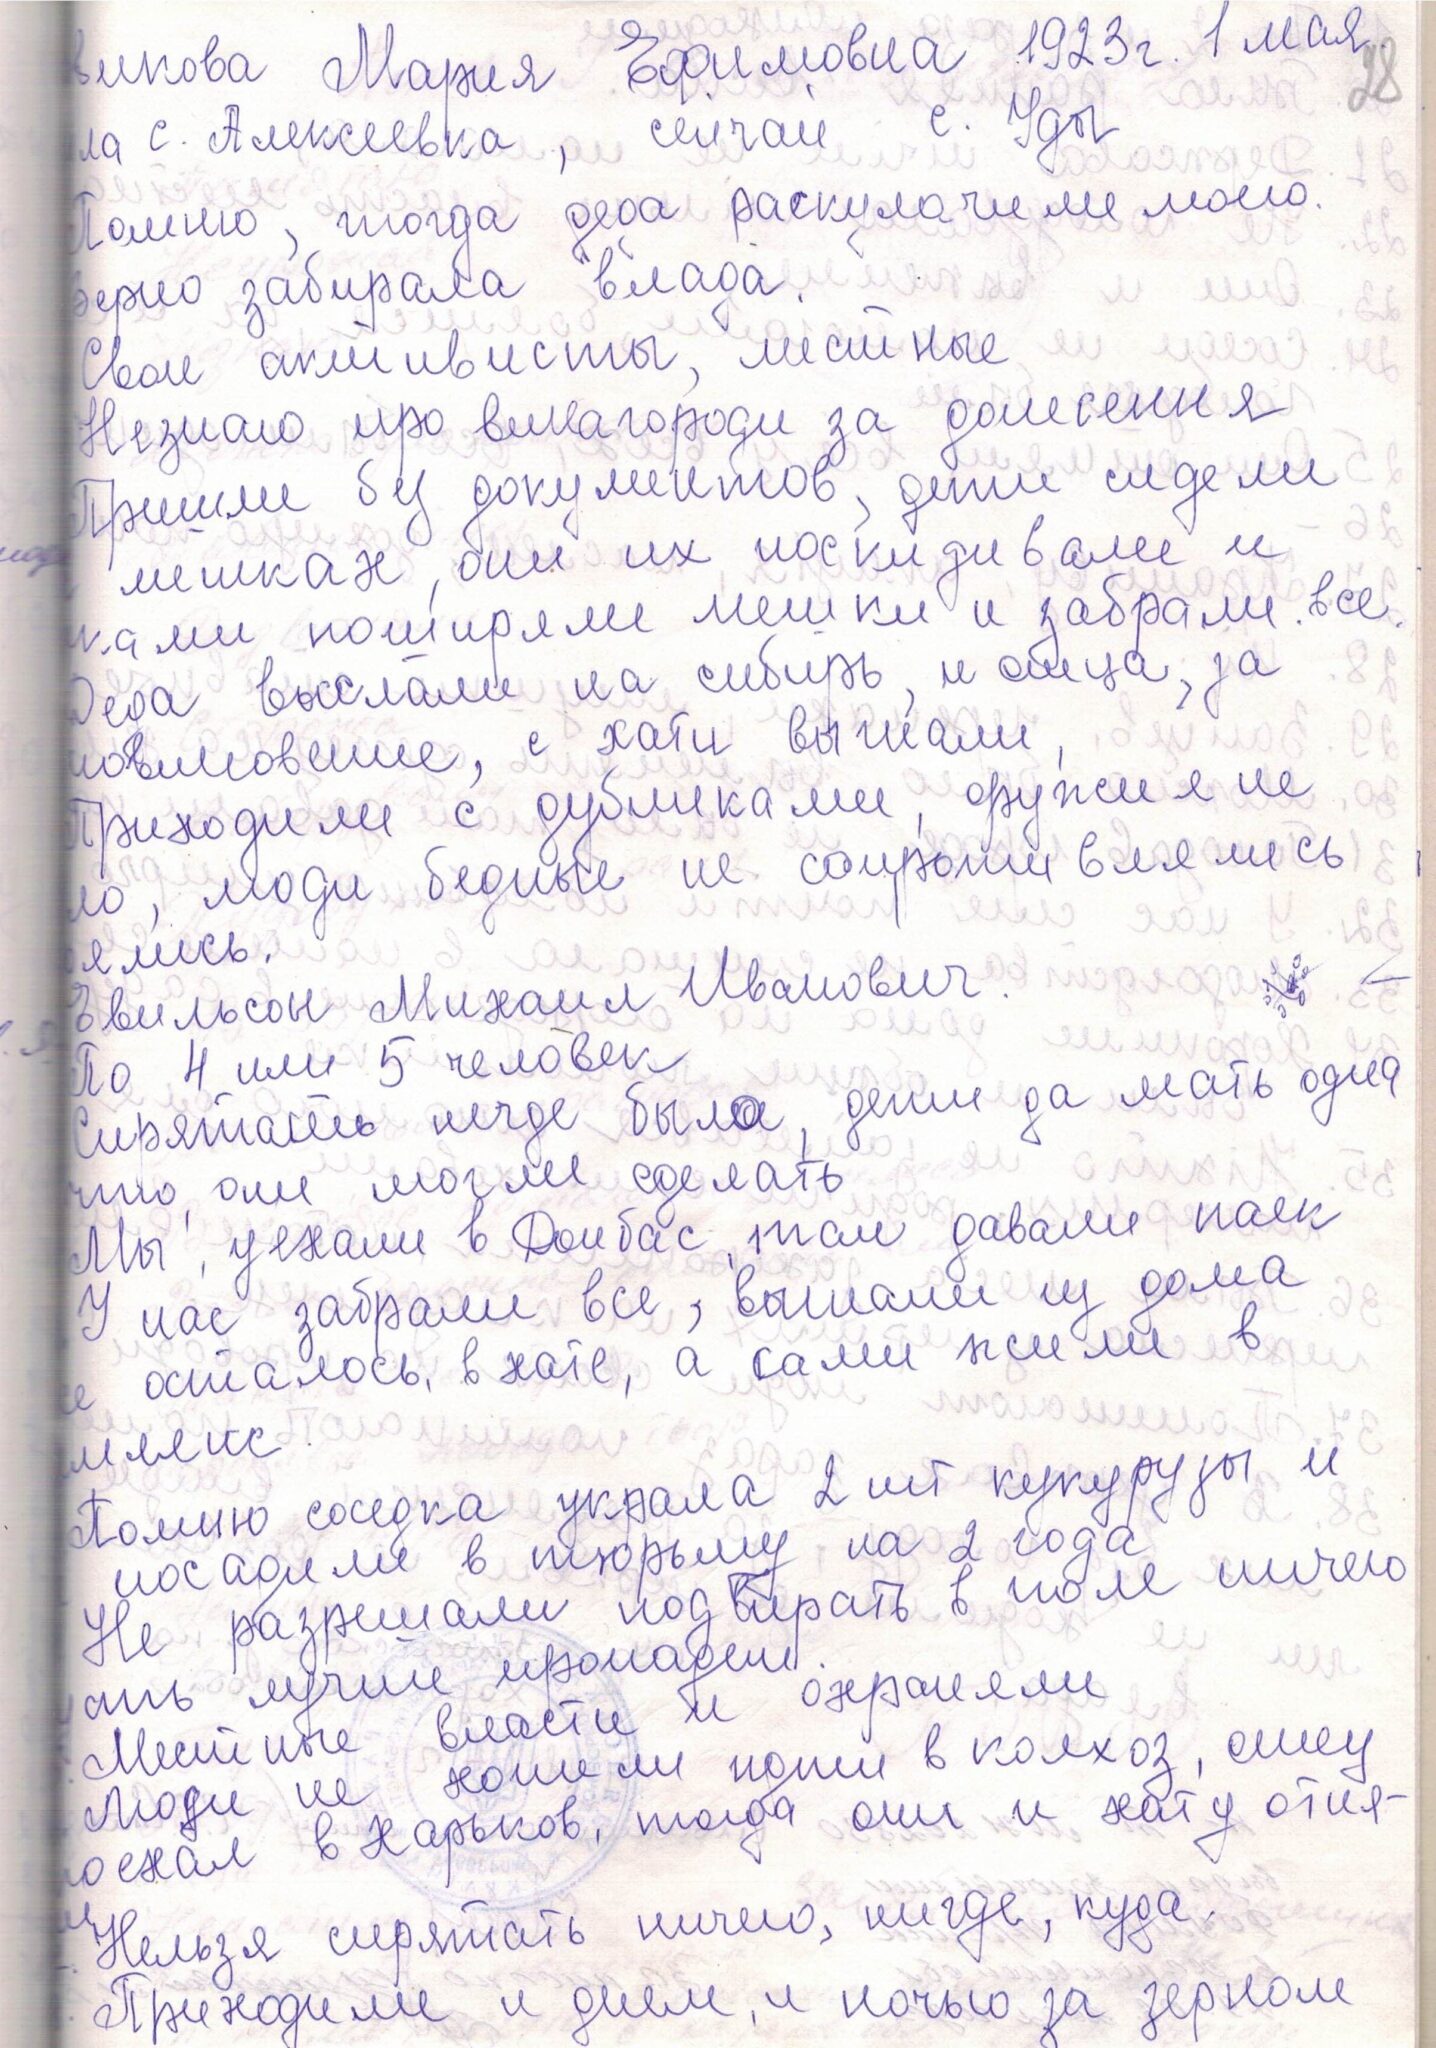 викова Мария Ефимовна 1923г. 1 мая.
28
ла с. Алексеевка, сейчас с. Уды
Помню, тогда деда раскулачили моего.
зерно забирала "влада".
Свои активисты, местные
Незнаю про винагороди за донесення
Пришли без документов, дети сидели
мешках, они их поскидивали и
ками поширяли мешки и забрали все.
Деда выслали на сибирь, и отца, за
новиновение, с хати выгнали,
Приходили с дубинками, оружия не
ло, люди бедные не сопротивлялись
оялись.
Эвильсон Михаил Иванович.
По 4 или 5 человек
Спрятать негде было, дети да мать одна
что они могли сделать
Мы уехали в Донбас, там давали паек
У нас забрали все, выгнали из дома
е осталось в хате, а сами жили в
млянке.
Помню соседка украла 2 шт кукурузы и
посадили в тюрьму на 2 года
Не разришали подбирать в поле ничего
ать лучий пропадет.
Местные власти и охраняли
Люди не хотели идти в колхоз, отец
оехал в Харьков, тогда они и хату отня-
и
Нельзя спрятать ничего, нигде, куда.
Приходили и днем, и ночью за зерном